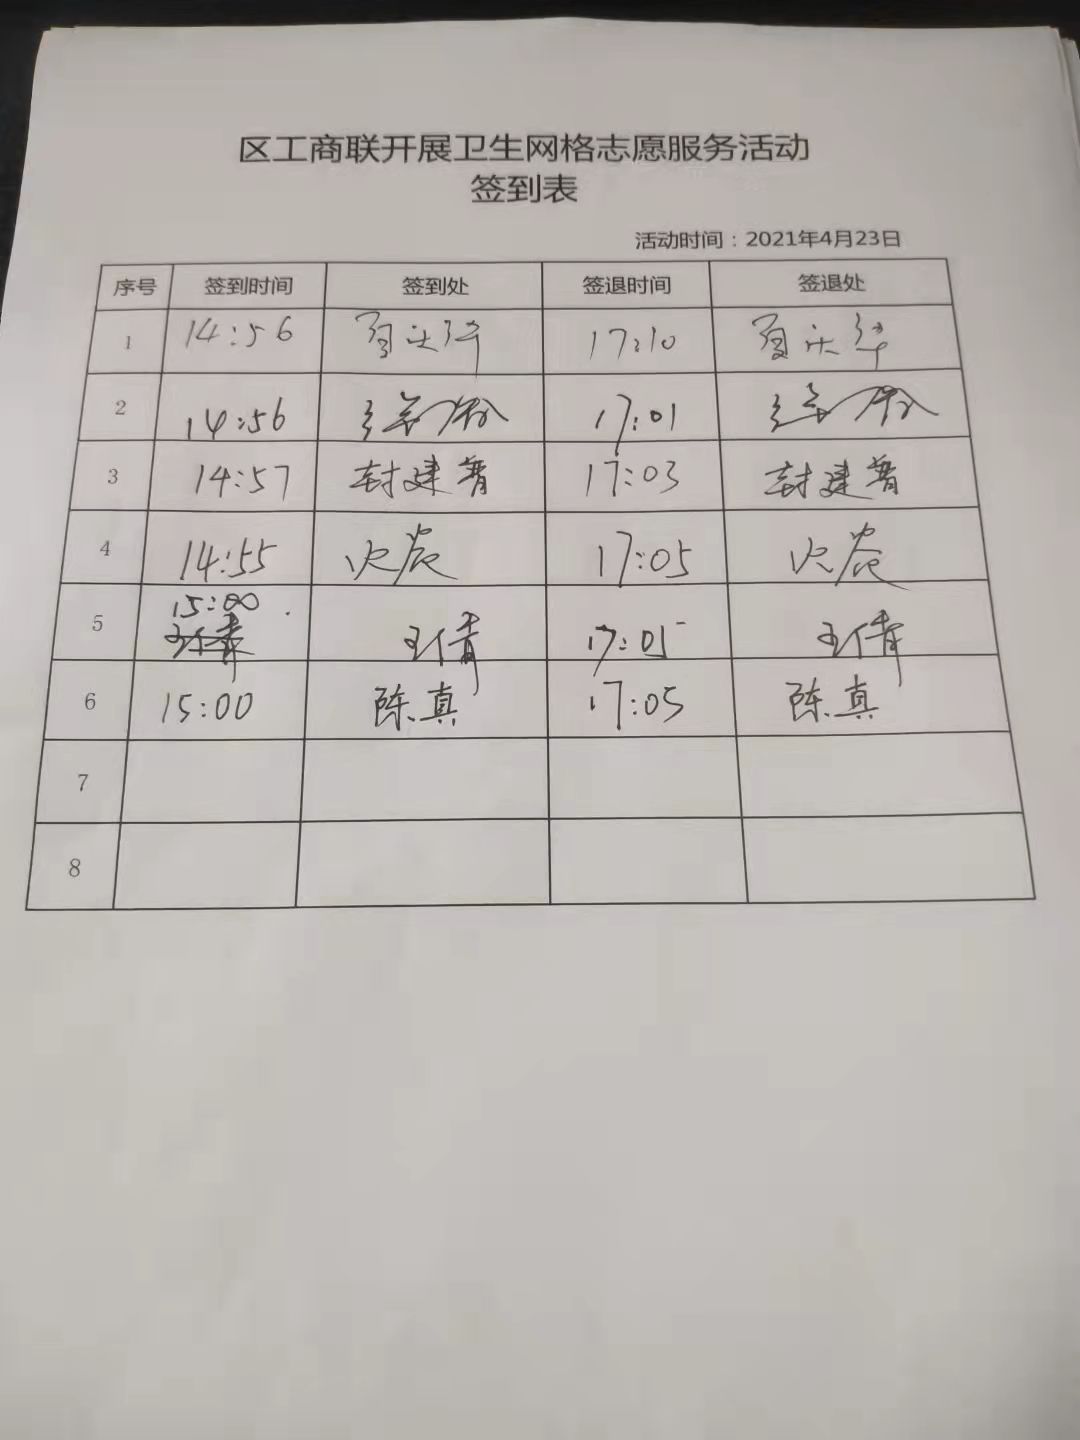 区工商联开展卫生网格志愿服务活动
签到表
活动时间：2021年4月23日
序号 签到时间 签到处 签退时间 签退处
1 14:56 17:10
2 14:56 17:01
3 14:57 封建普 17:03 封建普
4 14:55 17:05
15:00
5 王倩 王倩 17:05 王倩
6 15:00 陈真 17:05 陈真
7
8